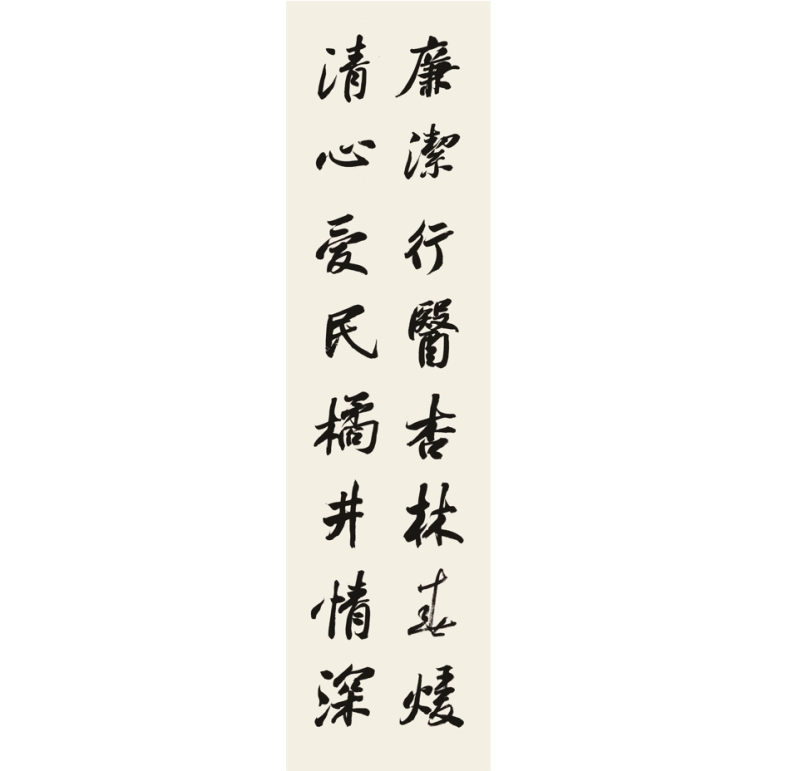 廉潔行醫杏林春煖
清心爱民橘井情深